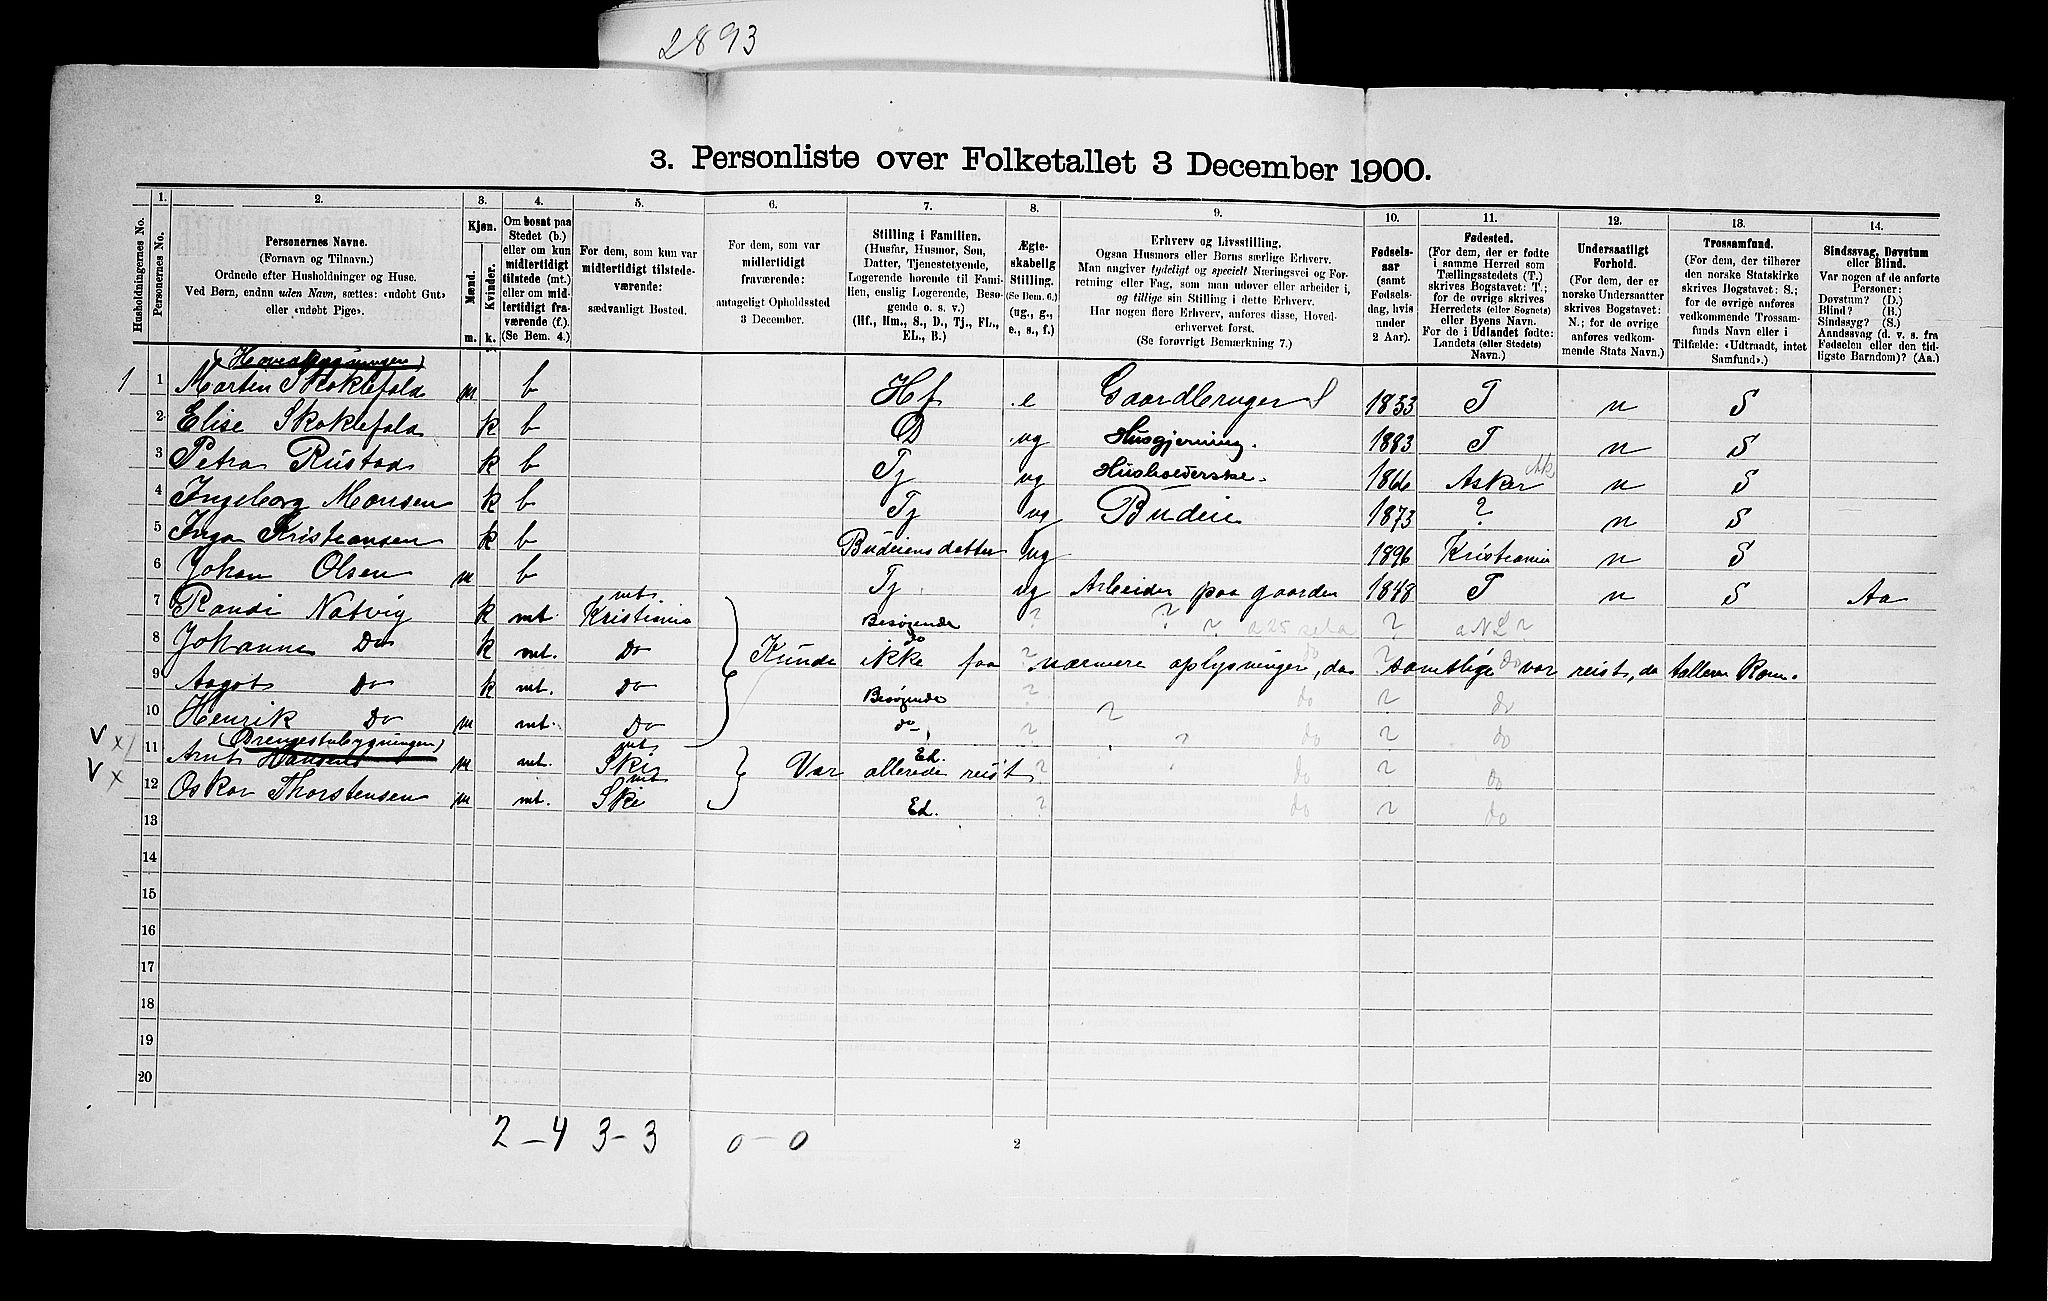 2893
3. Personliste over Folketallet 3 December 1900.
Husholdningernes No.
1.
Personernes No.
2.
Personernes Navne.
(Fornavn og Tilnavn.)
Ordnede efter Husholdninger og Huse.
Ved Børn, endnu uden Navn, sættes: «udøbt Gut»
eller «udøbt Pige».
3.
Kjøn.
Mænd.
Kvinder.
m. k.
4.
Om bosat paa
Stedet (b.)
eller om kun
midlertidigt
tilstede (mt.)
eller om mid-
lertidigt fra-
værende (f.).
(Se Bem. 4.)
5.
For dem, som kun var
midlertidigt tilstede-
værende:
sædvanligt Bosted.
6.
For dem, som var
midlertidigt
fraværende:
antageligt Opholdssted
3 December.
7.
Stilling i Familien.
(Husfar, Husmor, Søn,
Datter, Tjenestetyende,
Logerende hørende til Fami-
lien, enslig Logerende, Besø-
gende o. s. v.)
(Hf., Hm., S., D., Tj., FL.,
EL., B.)
8.
Ægte-
skabelig
Stilling.
(Se Bem. 6.)
(ug., g.,
e., s., f.)
9.
Erhverv og Livsstilling.
Ogsaa Husmors eller Børns særlige Erhverv.
Man angiver tydeligt og specielt Næringsvei og For-
retning eller Fag, som man udøver eller arbeider i,
og tillige sin Stilling i dette Erhverv.
Har nogen flere Erhverv, anføres disse, Hoved-
erhvervet først.
(Se forøvrigt Bemærkning 7.)
10.
Fødsels-
aar
(samt
Fødsels-
dag, hvis
under
2 Aar).
11.
Fødested.
(For dem, der er fødte
i samme Herred som
Tællingsstedets (T.)
skrives Bogstavet: T.;
for de øvrige skrives
Herredets (eller Sognets)
eller Byens Navn.
For de i Udlandet fødte:
Landets (eller Stedets)
Navn.)
12.
Undersaatligt
Forhold.
(For dem, der er
norske Undersaatter
skrives Bogstavet:
N.; for de øvrige
anføres vedkom-
mende Stats Navn.)
13.
Trossamfund.
(For dem, der tilhører
den norske Statskirke
skrives Bogstavet: S.;
for de øvrige anføres
vedkommende Trossam-
funds Navn eller i
Tilfælde: «Udtraadt, intet
Samfund».)
14.
Sindssvag, Døvstum
eller Blind.
Var nogen af de anførte
Personer:
Døvstum? (D.)
Blind? (B.)
Sindssyg? (S.)
Aandssvag (d. v. s. fra
Fødselen eller den tid-
ligste Barndom)? (Aa.)
(Hovedbygningen)
1 1 Marten Skoklefald m b Hf e Gaardbruger S 1853 T n S
2 Elise Skoklefald k b D ug Husgjerning. 1883 T n S
3 Petra Rustad k b Tj ug Husholderske. 1866 Asker Ak n S
4 Ingeborg Monsen k b Tj ug Budeie 1873 ? n S
5 Inga Kristiansen k b Budeiens datter ug 1896 Kristiania n S
6 Johan Olsen m b Tj ug Arbeider paa gaarden 1848 T n S Aa
7 Randi Natvig k mt. mt. Kristiania Besøgende ? ? ? ? ?
8 Johanne Do k mt. Do do ? do ? do
Kunde ikke faa nærmere oplysninger, da samtlige var reist, da tælleren kom.
9 Aagot Do k mt. Do Besøgende ? ? do ? do
10 Henrik Do m mt. Do do ? ? do ? do
(Drengestubygningen)
V x 11 Arnt Hansen m mt. mt Ski Var allerede reist El. ? do ? do
V x 12 Oskar Thorstensen m mt. mt Ski El. ? do ? do
13
14
15
16
17
18
19
20
2 - 4 3 - 3 0 - 0
2